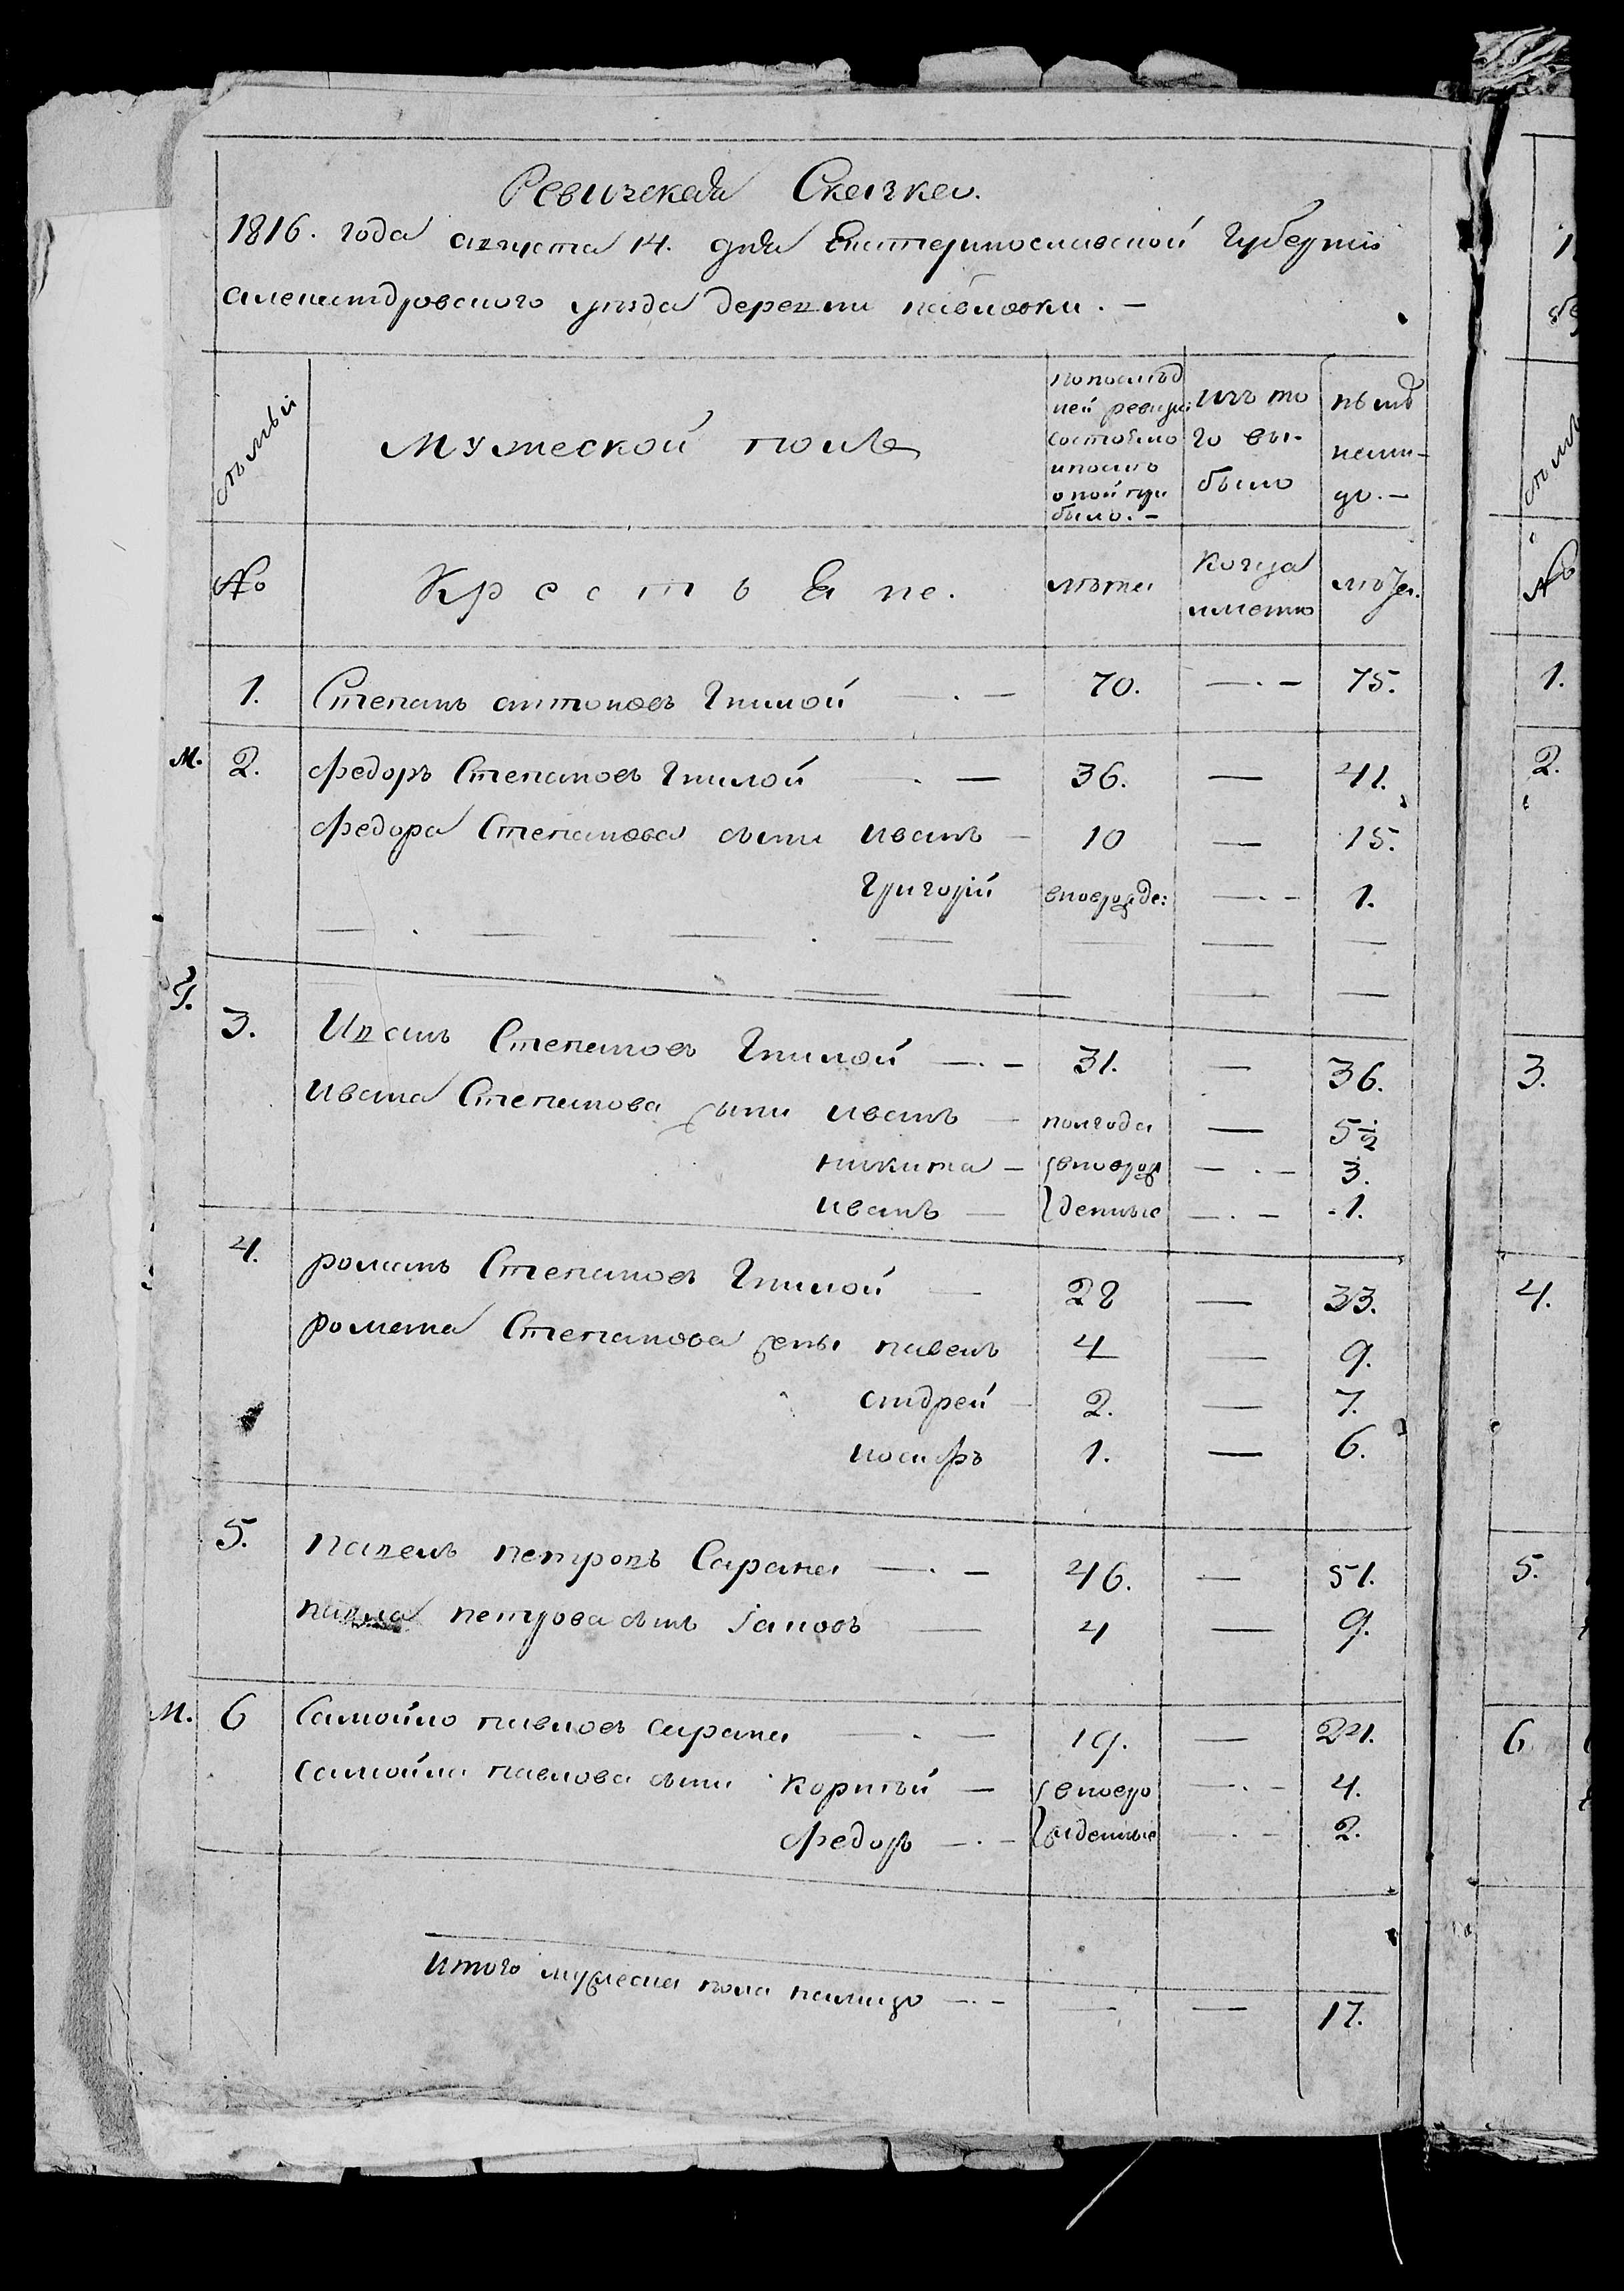 Ревизская Скаска.
1816. года августа 14. дня Екатеринославской Губернии
александровского уезда деревни павловки. —
семьи
Мужеской полъ
по послѣд
ней ревизіи
состояло
и послѣ
оной при
было. —
изъ то
го вы-
было
нынѣ
нали-
цо. —
№
Крестьяне.
лѣта
Когда
имянно
лѣта.
1. Степанъ антоновъ Гнилой — . — 70. — . — 75.
М. 2. Федоръ Степановъ Гнилой . — 36. — 41.
Федора Степанова сыни иванъ — 10 — 15.
Григорій вноврожде: — . — 1.
3. Иванъ Степановъ Гнилой — . — 31. — 36.
ивана Степанова сыни иванъ — полгода — 5½
никита — вноврож — . — 3.
иванъ — денные — . — 1.
4. романъ Степановъ Гнилой — 28 — 33.
романа Степанова сены павелъ 4 — 9.
андрей — 2. — 7.
иосифъ 1. — 6.
5. павелъ петровъ Сарана — . — 46. — 51.
павла петрова сынъ яковъ — 4 — 9.
М. 6 Самойло павловъ сарана — . — 19. — 24.
самойла павлова сыни Корнѣй — вновро — . — 4.
Федоръ — . — жденные — . — 2.
итого мужеска пола налицо — . — — — 17.
1.
2.
3.
4.
5.
6